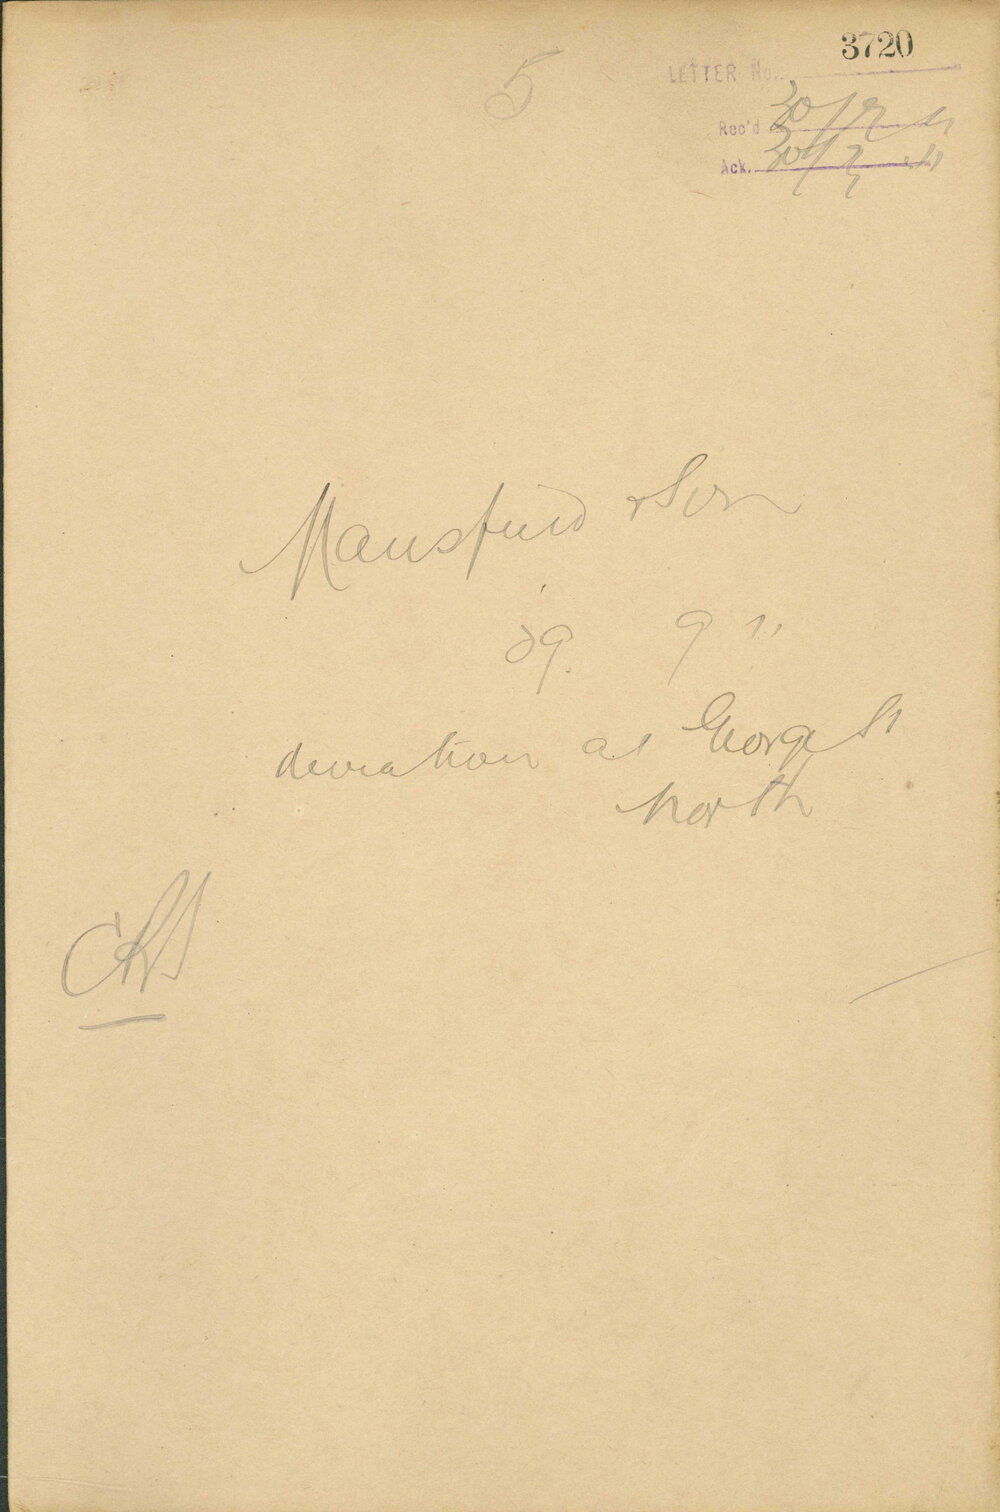 5
3720
LETTER No.
Rec'd 30/9 11
Ack. 30/9 11
Mansfield & Son
29. 9 11
deviation at George St
North